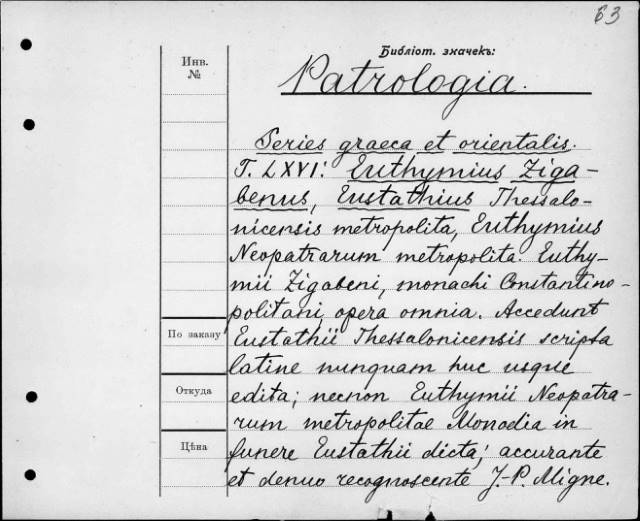 63
Библіот. значекъ:
Инв.
№
Patrologia.
Series graeca et orientalis.
T. LXVI: Euthymius Ziga-
benus, Eustathius Thessalo-
nicensis metropolita, Euthymius
Neopatrarum metropolita. Euthy-
mii Zigabeni, monachi Constantino-
politani, opera omnia. Accedunt
По заказу
Eustathii Thessalonicensis scripta
latine nunquam huc usque
Откуда
edita; necnon Euthymii Neopatra-
rum metropolitae Monodia in
Цѣна
funere Eustathii dicta; accurante
et denuo recognoscente J.-P. Migne.